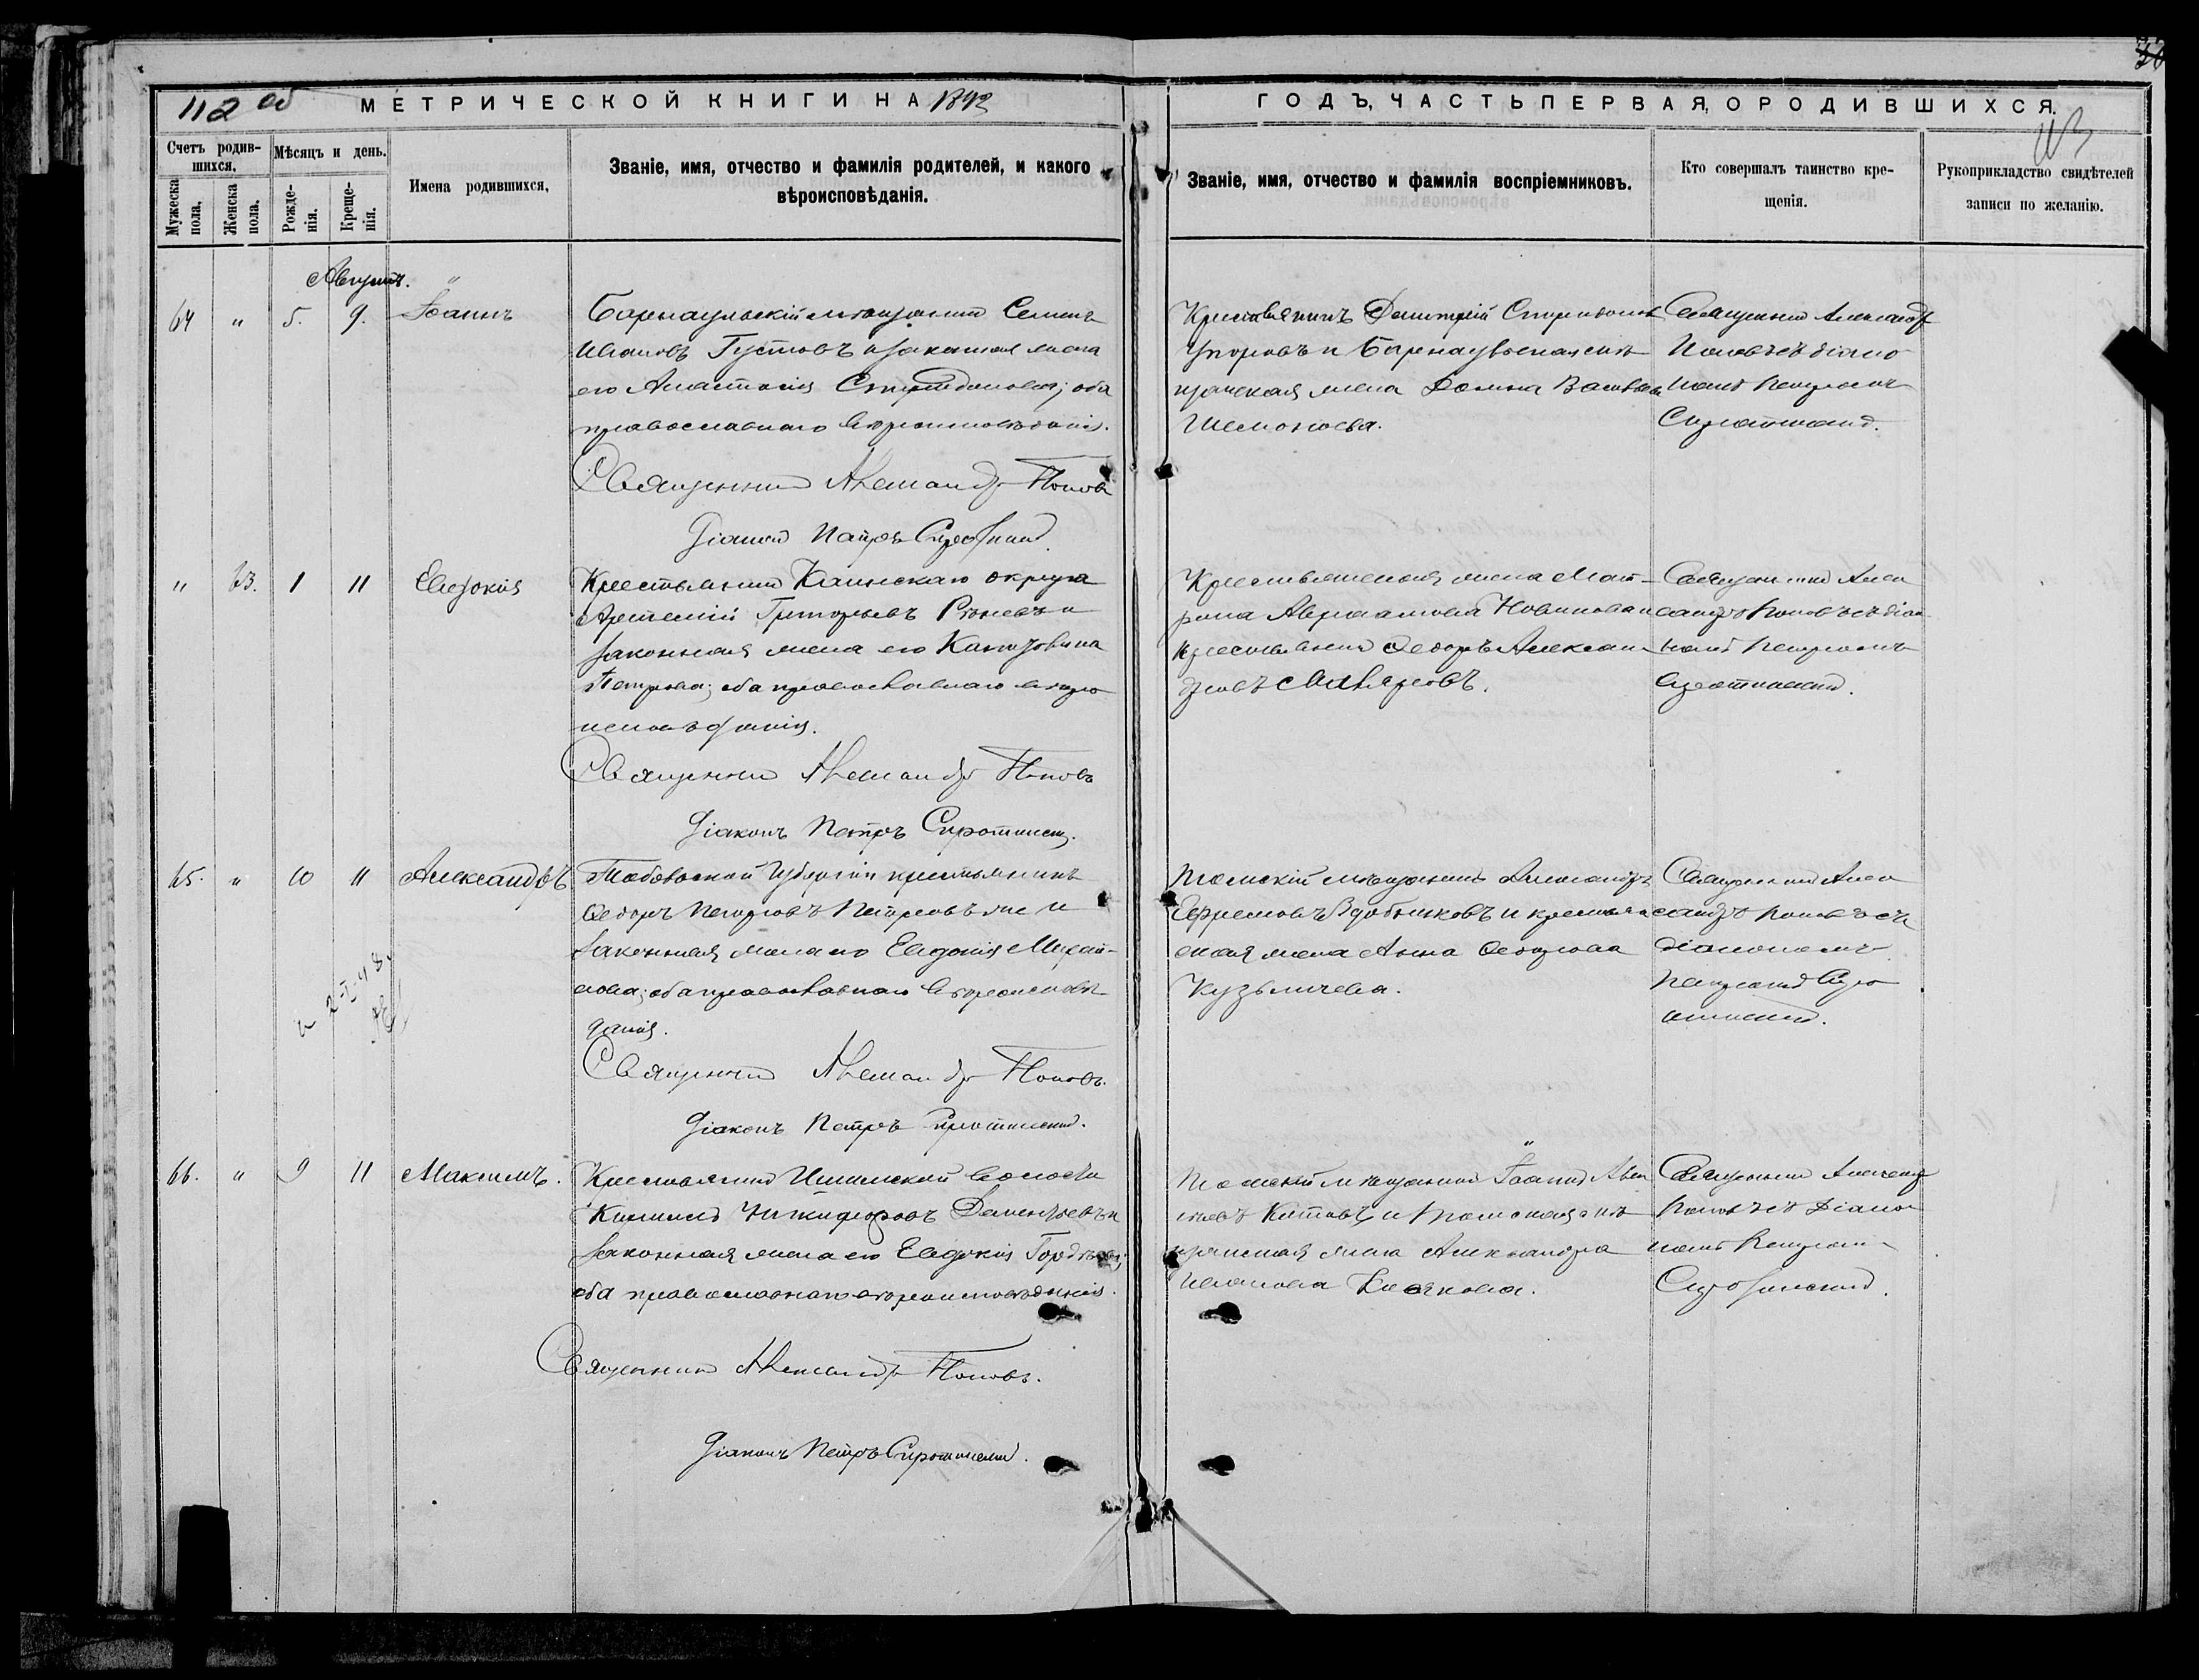 112 об
МЕТРИЧЕСКОЙ КНИГИ НА 1893
ГОДЪ, ЧАСТЬ ПЕРВАЯ, О РОДИВШИХСЯ.
113
Счетъ родив-
шихся.
Мѣсяцъ и день.
Мужеска
пола.
Женска
пола.
Рожде-
нія.
Креще-
нія.
Имена родившихся,
Званіе, имя, отчество и фамилія родителей, и какого
вѣроисповѣданія.
Званіе, имя, отчество и фамилія воспріемниковъ.
Кто совершалъ таинство кре-
щенія.
Рукоприкладство свидѣтелей
записи по желанію.
Августъ.
64 " 5. 9. Іоаннъ
Барнаульскій мѣщанинъ Семенъ
Ивановъ Густовъ и законная жена
его Анастасія Спиридонова; оба
православнаго вѣроисповѣданія.
Священникъ Александръ Поповъ
Діаконъ Петръ Сиротинскій.
Крестьянинъ Димитрій Спиридоновъ
Упоровъ и Барнаульская мѣ
щанская жена Домна Васильева
Шемонаева.
Священникъ Александръ
Поповъ съ діако
номъ Петромъ
Сиротинскимъ.
" 63. 1 11 Евдокія
Крестьянинъ Каинскаго округа
Артемій Григорьевъ и
законная жена его
Петрова; оба православнаго вѣро
исповѣданія.
Священникъ Александръ Поповъ
Діаконъ Петръ Сиротинскій.
Крестьянская жена Мат-
рона Авраамова Новикова и
крестьянинъ Ѳедоръ Алексан
дровъ
Священникъ Алек
сандръ Поповъ съ діако
номъ Петромъ
Сиротинскимъ.
65. " 10 11 Александръ
Тобольской губерніи крестьянинъ
Ѳедоръ Петровъ Петровъ же и
законная жена его Евдокія Михай-
лова; оба православнаго вѣроисповѣ
данія.
Священникъ Александръ Поповъ.
Діаконъ Петръ Сиротинскій.
Томскій мѣщанинъ Александръ
Ефремовъ Вдобниковъ и крестьян
ская жена Анна Ѳедорова
Кузьмичева.
Священникъ Алек
сандръ Поповъ съ
діакономъ
Петромъ Сиро
тинскимъ.
66. " 9 11 Максимъ.
Крестьянинъ Ишимской волости
Никифоровъ Дементьевъ и
законная жена его Евдокія Гордѣева;
оба православнаго вѣроисповѣданія.
Священникъ Александръ Поповъ.
Діаконъ Петръ Сиротинскій.
Томскій мѣщанинъ Іоаннъ
Китовъ и Томская мѣ
щанская жена Александра
Иванова
Священникъ Александръ
Поповъ съ діако
номъ Петромъ
Сиротинскимъ.